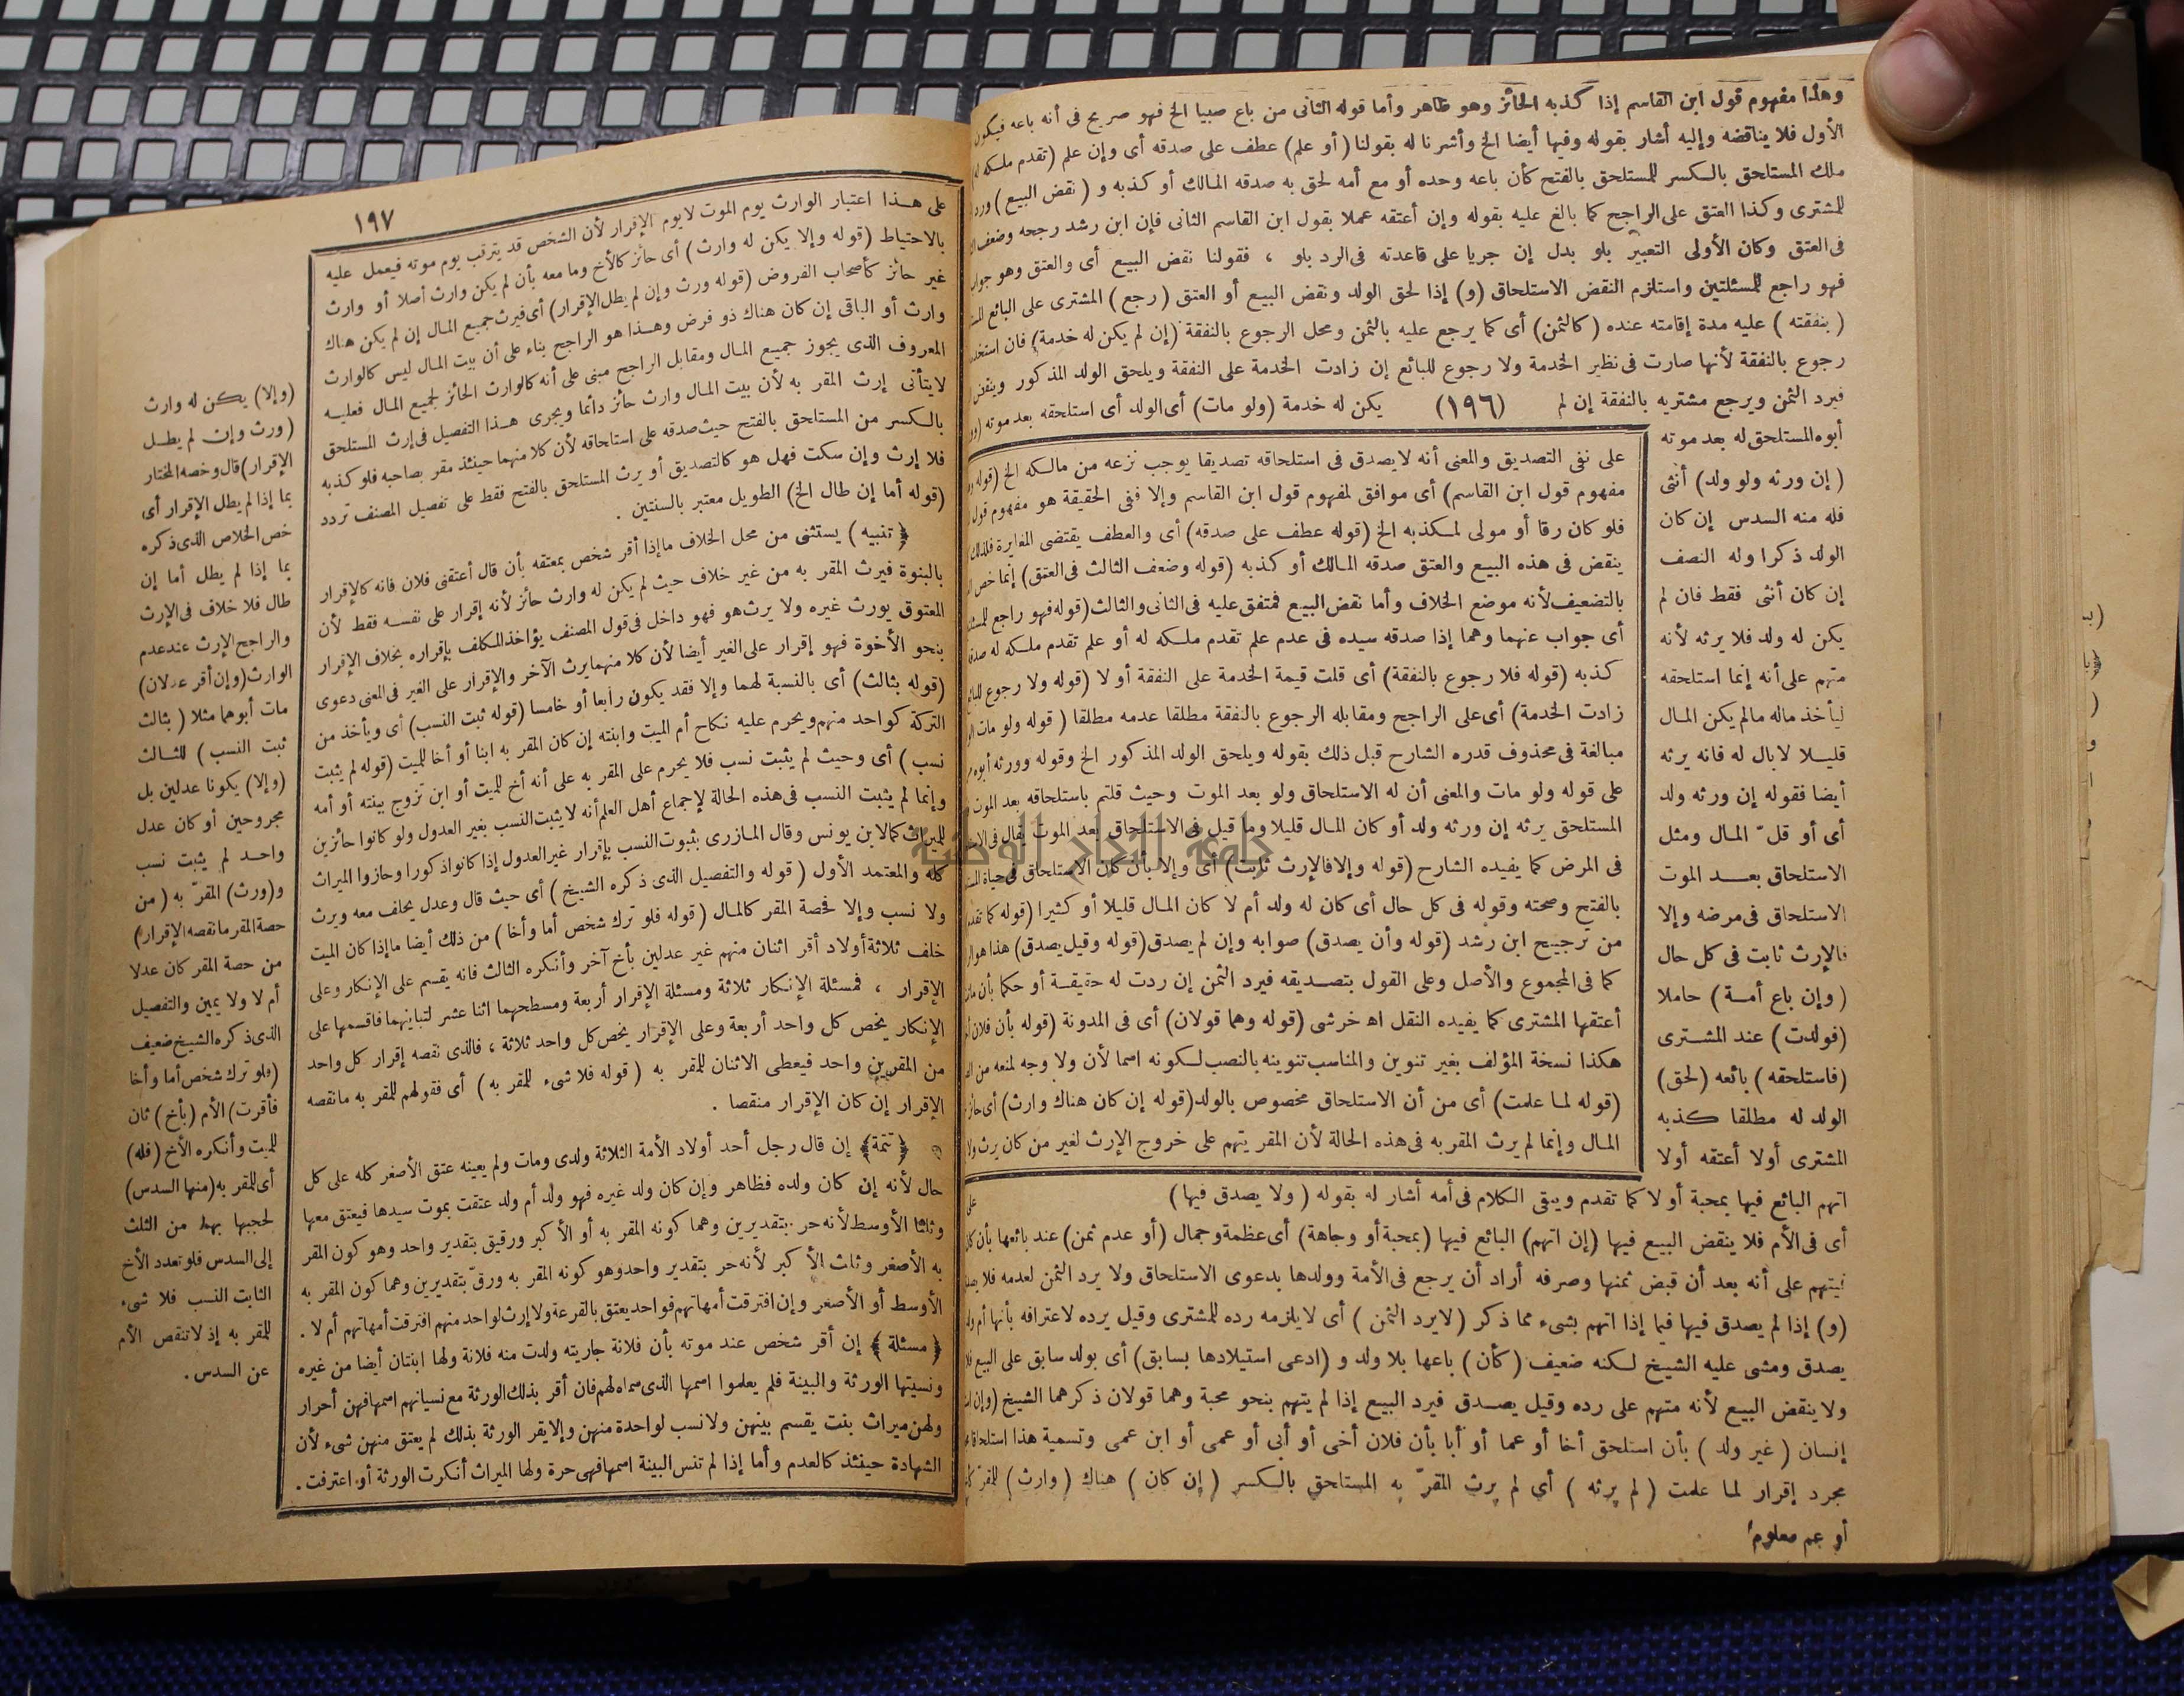 وهذا مفهوم قول ابن القاسم إذا كذبه الحائز وهو ظاهر وأما قوله الثانى من باع صبيا الخ فهو صريح فى أنه باعه فيكون
الأول فلا يناقضه وإليه أشار بقوله وفيها أيضا الخ وأشرنا له بقولنا (أو علم) عطف على صدقه أى وإن علم (تقدم ملكه
ملك المستلحق بالكسر للمستلحق بالفتح كأن باعه وحده أو مع أمه لحق به صدقه المالك أو كذبه و (نقض البيع)
للمشترى وكذا العتق على الراجح كما بالغ عليه بقوله وإن أعتقه عملا بقول ابن القاسم الثانى فإن ابن رشد رجحه وضعف
فى العتق وكان الأولى التعبير بلو بدل إن جريا على قاعدته فى الرد بلو ، فقولنا نقض البيع أى والعتق وهو جواب
فهو راجع للمسئلتين واستلزم النقض الاستلحاق (و) إذا لحق الولد ونقض البيع أو العتق (رجع) المشترى على البائع
(بنفقته) عليه مدة إقامته عنده (كالثمن) أى كما يرجع عليه بالثمن ومحل الرجوع بالنفقة (إن لم يكن له خدمة) فان
رجوع بالنفقة لأنها صارت فى نظير الخدمة ولا رجوع للبائع إن زادت الخدمة على النفقة ويلحق الولد المذكور
فيرد الثمن ويرجع مشتريه بالنفقة إن لم (١٩٦) يكن له خدمة (ولو مات) أى الولد أى استلحقه بعد موته
أبوه المستلحق له بعد موته
(إن ورثه ولو ولد) أنثى
فله منه السدس إن كان
الولد ذكرا وله النصف
إن كان أنثى فقط فان لم
يكن له ولد فلا يرثه لأنه
متهم على أنه إنما استلحقه
ليأخذ ماله مالم يكن المال
قليلا لابال له فانه يرثه
أيضا فقوله إن ورثه ولد
أى أو قلّ المال ومثل
الاستلحاق بعد الموت
الاستلحاق فى مرضه وإلا
فالإرث ثابت فى كل حال
(وإن باع أمة) حاملا
(فولدت) عند المشترى
(فاستلحقه) بائعه (لحق)
الولد له مطلقا كذبه
المشترى أولا أعتقه أولا
على نفى التصديق والمعنى أنه لا يصدق فى استلحاقه تصديقا يوجب نزعه من مالكه الخ (قوله
مفهوم قول ابن القاسم) أى موافق لمفهوم قول ابن القاسم وإلا ففى الحقيقة هو مفهوم قول
فلو كان رقا أو مولى لمكذبه الخ (قوله عطف على صدقه) أى والعطف يقتضى المغايرة
ينقض فى هذه البيع والعتق صدقه المالك أو كذبه (قوله وضعف الثالث فى العتق) إنما خص
بالتضعيف لأنه موضع الخلاف وأما نقض البيع فمتفق عليه فى الثانى والثالث (قوله فهو راجع
أى جواب عنهما وهما إذا صدقه سيده فى عدم علم تقدم ملكه له أو علم تقدم ملكه له
كذبه (قوله فلا رجوع بالنفقة) أى قلت قيمة الخدمة على النفقة أولا (قوله ولا رجوع
زادت الخدمة) أى على الراجح ومقابله الرجوع بالنفقة مطلقا عدمه مطلقا (قوله ولو مات
مبالغة فى محذوف قدره الشارح قبل ذلك بقوله ويلحق الولد المذكور الخ وقوله وورثه أبوه
على قوله ولو مات والمعنى أن له الاستلحاق ولو بعد الموت وحيث قلتم باستلحاقه بعد الموت
المستلحق يرثه إن ورثه ولد أو كان المال قليلا وما قيل فى الاستلحاق بعد الموت يقال فى
فى المرض كما يفيده الشارح (قوله وإلا فالإرث ثابت) أى وإلا بأن كان الاستلحاق فى حياة
بالفتح وصحته وقوله فى كل حال أى كان له ولد أم لا كان المال قليلا أو كثيرا (قوله كما
من ترجيح ابن رشد (قوله وأن يصدق) صوابه وإن لم يصدق (قوله وقيل يصدق) هذا هو
كما فى المجموع والأصل وعلى القول بتصديقه فيرد الثمن إن ردت له حقيقة أو حكما بأن
أعتقها المشترى كما يفيده النقل اه خرشى (قوله وهما قولان) أى فى المدونة (قوله بأن فلان
هكذا نسخة المؤلف بغير تنوين والمناسب تنوينه بالنصب لكونه اسما لأن ولا وجه لمنعه من
(قوله لما علمت) أى من أن الاستلحاق مخصوص بالولد (قوله إن كان هناك وارث) أى
المال وإنما لم يرث المقر به فى هذه الحالة لأن المقر يتهم على خروج الإرث لغير من كان يرث
اتهم البائع فيها بمحبة أولا كما تقدم ويبقى الكلام فى أمه أشار له بقوله (ولا يصدق فيها)
على
أى فى الأم فلا ينقض البيع فيها (إن اتهم) البائع فيها (بمحبة أو وجاهة) أى عظمة وجمال (أو عدم ثمن) عند بائعها بأن
فيتهم على أنه بعد أن قبض ثمنها وصرفه أراد أن يرجع فى الأمة وولدها بدعوى الاستلحاق ولا يرد الثمن لعدمه فلا
(و) إذا لم يصدق فيها فيما إذا اتهم بشىء مما ذكر (لا يرد الثمن) أى لا يلزمه رده للمشترى وقيل يرده لاعترافه بأنها أم
يصدق ومشى عليه الشيخ لكنه ضعيف (كأن) باعها بلا ولد و (ادعى استيلادها بسابق) أى بولد سابق على البيع
ولا ينقض البيع لأنه متهم على رده وقيل يصدق فيرد البيع إذا لم يتهم بنحو محبة وهما قولان ذكرهما الشيخ
إنسان (غير ولد) بأن استلحق أخا أو عما أو أبا بأن فلان أخى أو أبى أو عمى أو ابن عمى وتسمية هذا
مجرد إقرار لما علمت (لم يرثه) أى لم يرث المقرّ به المستلحق بالكسر (إن كان) هناك (وارث)
أو عم معلوم
١٩٧
على هذا اعتبار الوارث يوم الموت لا يوم الإقرار لأن الشخص قد يترقب يوم موته فيعمل عليه
بالاحتياط (قوله وإلا يكن له وارث) أى حائز كالأخ وما معه بأن لم يكن وارث أصلا أو وارث
غير حائز كأصحاب الفروض (قوله ورث وإن لم يطل الإقرار) أى فيرث جميع المال إن لم يكن هناك
وارث أو الباقى إن كان هناك ذو فرض وهذا هو الراجح بناء على أن بيت المال ليس كالوارث
المعروف الذى يجوز جميع المال ومقابل الراجح مبنى على أنه كالوارث الحائز لجميع المال فعليه
لا يتأتى إرث المقر به لأن بيت المال وارث حائز دائما ويجرى هذا التفصيل فى إرث المستلحق
بالكسر من المستلحق بالفتح حيث صدقه على استلحاقه لأن كلا منهما حينئذ مقر بصاحبه فلو كذبه
فلا إرث وإن سكت فهل هو كالتصديق أو يرث المستلحق بالفتح فقط على تفصيل المصنف تردد
(قوله أما إن طال الخ) الطويل معتبر بالسنتين .
﴿تنبيه﴾ يستثنى من محل الخلاف ما إذا أقر شخص بمعتقه بأن قال أعتقنى فلان فانه كالإقرار
بالبنوة فيرث المقر به من غير خلاف حيث لم يكن له وارث حائز لأنه إقرار على نفسه فقط لأن
المعتوق يورث غيره ولا يرث هو فهو داخل فى قول المصنف يؤاخذ المكلف بإقراره بخلاف الإقرار
بنحو الأخوة فهو إقرار على الغير أيضا لأن كلا منهما يرث الآخر والإقرار على الغير فى المعنى دعوى
(قوله بثالث) أى بالنسبة لهما وإلا فقد يكون رابعا أو خامسا (قوله ثبت النسب) أى ويأخذ من
التركة كواحد منهم ويحرم عليه نكاح أم الميت وابنته إن كان المقر به ابنا أو أخا للميت (قوله لم يثبت
نسب) أى وحيث لم يثبت نسب فلا يحرم على المقر به على أنه أخ للميت أو ابن تزوج بينته أو أمه
وإنما لم يثبت النسب فى هذه الحالة لإجماع أهل العلم أنه لا يثبت النسب بغير العدول ولو كانوا حائزين
للميراث كما لابن يونس وقال المازرى بثبوت النسب بإقرار غير العدول إذا كانوا ذكورا وحازوا الميراث
كله والمعتمد الأول (قوله والتفصيل الذى ذكره الشيخ) أى حيث قال وعدل يحلف معه ويرث
ولا نسب وإلا فحصة المقر كالمال (قوله فلو ترك شخص أما وأخا) من ذلك أيضا ما إذا كان الميت
خلف ثلاثة أولاد أقر اثنان منهم غير عدلين بأخ آخر وأنكره الثالث فانه يقسم على الإنكار وعلى
الإقرار ، فمسئلة الإنكار ثلاثة ومسئلة الإقرار أربعة ومسطحهما اثنا عشر لتباينهما فاقسمها على
الإنكار يخص كل واحد أربعة وعلى الإقرار يخص كل واحد ثلاثة ، فالذى نقصه إقرار كل واحد
من المقرين واحد فيعطى الاثنان للمقر به (قوله فلا شىء للمقر به) أى فقولهم للمقر به ما نقصه
الإقرار إن كان الإقرار منقصا .
﴿تتمة﴾ إن قال رجل أحد أولاد الأمة الثلاثة ولدى ومات ولم يعينه عتق الأصغر كله على كل
حال لأنه إن كان ولده فظاهر وإن كان ولد غيره فهو ولد أم ولد عتقت بموت سيدها فيعتق معها
وثلثا الأوسط لأنه حر بتقديرين وهما كونه المقر به أو الأكبر ورقيق بتقدير واحد وهو كون المقر
به الأصغر وثلث الأكبر لأنه حر بتقدير واحد وهو كونه المقر به ورقّ بتقديرين وهما كون المقر به
الأوسط أو الأصغر وإن افترقت أمهاتهم فواحد يعتق بالقرعة ولا إرث لواحد منهم افترقت أمهاتهم أم لا .
﴿مسئلة﴾ إن أقر شخص عند موته بأن فلانة جاريته ولدت منه فلانة ولها ابنتان أيضا من غيره
ونسيتها الورثة والبينة فلم يعلموا اسمها الذى سماه لهم فان أقر بذلك الورثة مع نسيانهم اسمها فهن أحرار
ولهن ميراث بنت يقسم بينهن ولا نسب لواحدة منهن وإلا يقر الورثة بذلك لم يعتق منهن شىء لأن
الشهادة حينئذ كالعدم وأما إذا لم تنس البينة اسمها فهى حرة ولها الميراث أنكرت الورثة أو اعترفت .
(وإلا) يكن له وارث
(ورث وإن لم يطل
الإقرار) قال وخصه المختار
بما إذا لم يطل الإقرار أى
خص الخلاص الذى ذكره
بما إذا لم يطل أما إن
طال فلا خلاف فى الإرث
والراجح الإرث عند عدم
الوارث (وإن أقر عدلان)
مات أبوهما مثلا (بثالث
ثبت النسب) للثالث
(وإلا) يكونا عدلين بل
مجروحين أو كان عدل
واحد لم يثبت نسب
و(ورث) المقرّ به (من
حصة المقر ما نقصه الإقرار)
من حصة المقر كان عدلا
أم لا ولا يمين والتفصيل
الذى ذكره الشيخ ضعيف
(فلو ترك شخص أما وأخا
فأقرت) الأم (بأخ) ثان
للميت وأنكره الأخ (فله)
أى للمقر به (منها السدس)
لحجبها بهما من الثلث
إلى السدس فلو تعدد الأخ
الثابت النسب فلا شىء
للمقر به إذ لا تنقص الأم
عن السدس .
جامعة النجاح الوطنية